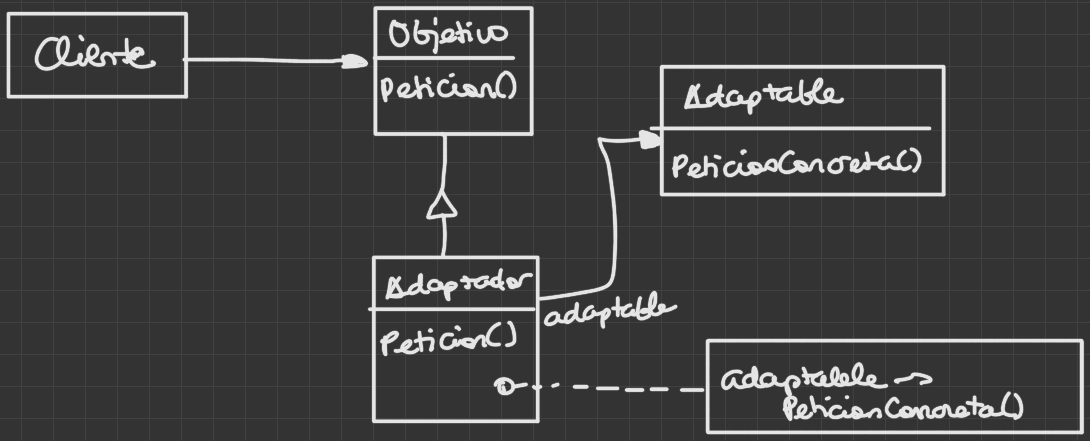 Cliente
Objetivo
Peticion()
Adaptable
PeticionConcreta()
Adaptador
Peticion()
adaptable
adaptable ->
PeticionConcreta()